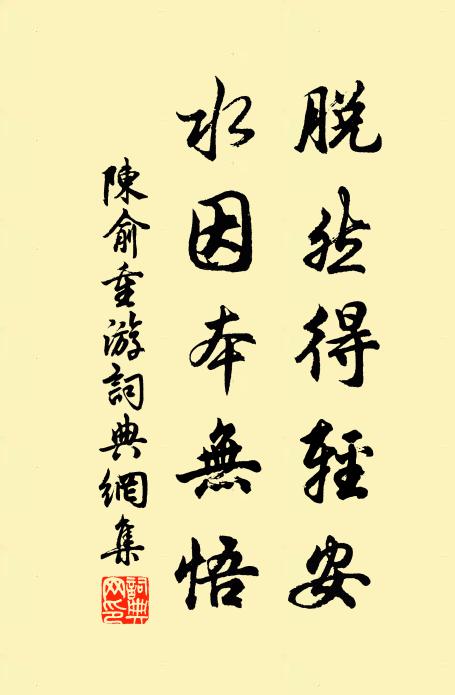 脫然得輕安
水因本無悟
陳俞重游詞典網集
詞典網印